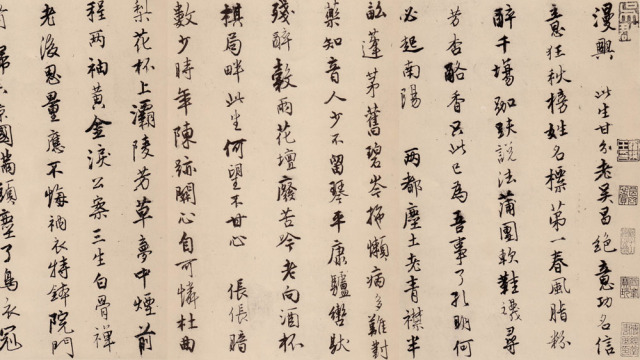 漫興 此生甘分老吳昌絕意功名信
意狂秋榜姓名標第一春風脂粉
醉千場跏趺說法蒲團軟鞋襪尋
芳杏酪香只此已為吾事了孔明何
必起南陽 兩都塵土老青襟半
畝蓬茅舊碧岑拙懶病多難對
藥知音人少不留琴平康驢轡馱
殘醉穀雨花壇廢苦吟老向酒杯
棋局畔此生何望不甘心 倀倀暗
數少時年陳跡關心自可憐杜曲
梨花杯上灞陵芳草夢中煙前
程兩袖黃金淚公案三生白骨禪
老後思量應不悔衲衣持鉢院門
京國滿頭塵